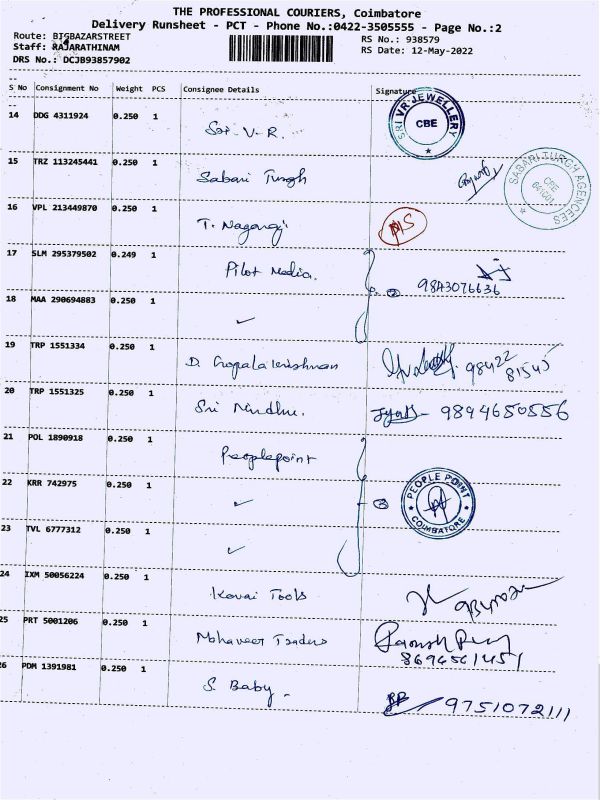 THE PROFESSIONAL COURIERS, Coimbatore
Delivery Runsheet - PCT - Phone No.:0422-3505555 - Page No.:2
Route: BIGBAZARSTREET RS No.: 938579
Staff: RAJARATHINAM RS Date: 12-May-2022
DRS No.: DCJB93857902
S No Consignment No Weight PCS Consignee Details Signature
14 DDG 4311924 0.250 1 Sri. V. R.
SRI VR JEWELLERY CBE
15 TRZ 113245441 0.250 1 Sabari Turgh
SABARI TURGH AGENCEES CBE 641001
16 VPL 213449870 0.250 1 T. Nagaraj
17 SLM 295379502 0.249 1 Pilot Media.
18 MAA 290694883 0.250 1 ✓
19 TRP 1551334 0.250 1 D. Gopalakrishnan 98422 81545
20 TRP 1551325 0.250 1 Sri Nandhu. 9894650556
21 POL 1890918 0.250 1 Peoplepoint
22 KRR 742975 0.250 1 ✓
PEOPLE POINT COIMBATORE
23 TVL 6777312 0.250 1 ✓
24 IXM 50056224 0.250 1 Kovai Tools
25 PRT 5001206 0.250 1 Mahaveer Traders
26 PDM 1391981 0.250 1 S. Baby - 9751072111